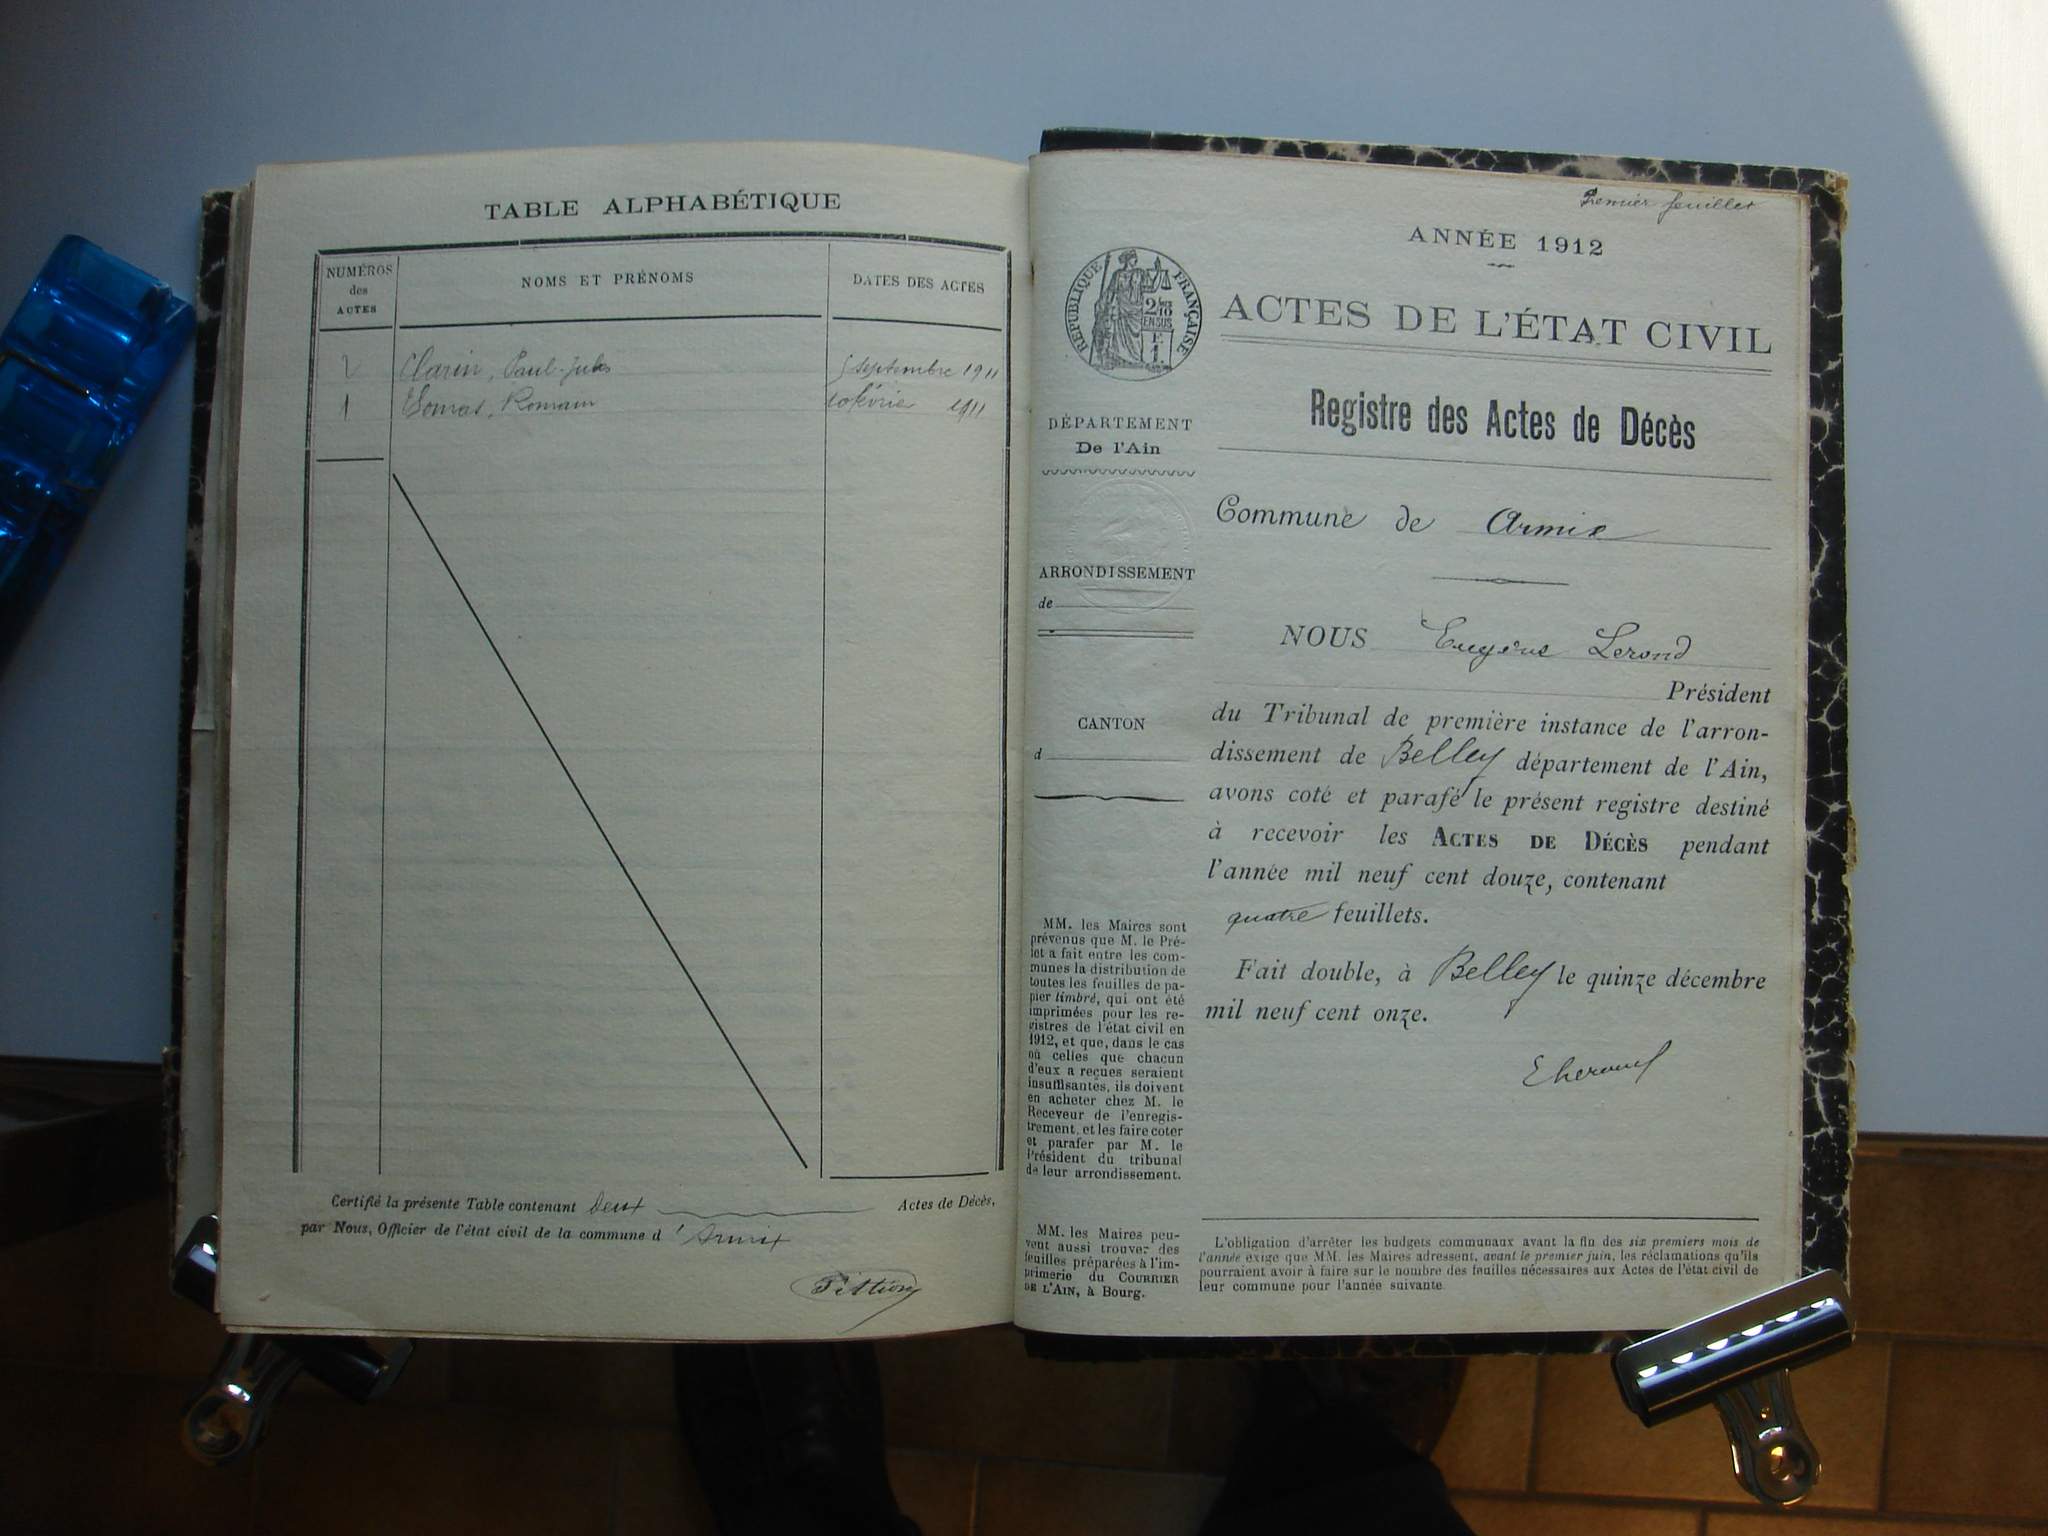 TABLE ALPHABÉTIQUE
NUMÉROS
des
ACTES
NOMS ET PRÉNOMS
DATES DES ACTES
2 Clarin, Paul-Jules 5 septembre 1911
1 Romain 1911
Certifié la présente Table contenant deux Actes de Décès,
par Nous, Officier de l'état civil de la commune d'Armix
Premier feuillet
ANNÉE 1912
RÉPUBLIQUE FRANÇAISE
2/10
EN SUS
F.
1.
ACTES DE L'ÉTAT CIVIL
Registre des Actes de Décès
DÉPARTEMENT
De l'Ain
ARRONDISSEMENT
de
CANTON
d
MM. les Maires sont
prévenus que M. le Pré-
fet a fait entre les com-
munes la distribution de
toutes les feuilles de pa-
pier timbré, qui ont été
imprimées pour les re-
gistres de l'état civil en
1912, et que, dans le cas
où celles que chacun
d'eux a reçues seraient
insuffisantes, ils doivent
en acheter chez M. le
Receveur de l'enregis-
trement, et les faire coter
et parafer par M. le
Président du tribunal
de leur arrondissement.
MM. les Maires peu-
vent aussi trouver des
feuilles préparées à l'im-
primerie du COURRIER
DE L'AIN, à Bourg.
Commune de Armix
NOUS Eugène Lerond
Président
du Tribunal de première instance de l'arron-
dissement de Belley département de l'Ain,
avons coté et parafé le présent registre destiné
à recevoir les ACTES DE DÉCÈS pendant
l'année mil neuf cent douze, contenant
quatre feuillets.
Fait double, à Belley le quinze décembre
mil neuf cent onze.
L'obligation d'arrêter les budgets communaux avant la fin des six premiers mois de
l'année exige que MM. les Maires adressent, avant le premier juin, les réclamations qu'ils
pourraient avoir à faire sur le nombre des feuilles nécessaires aux Actes de l'état civil de
leur commune pour l'année suivante.